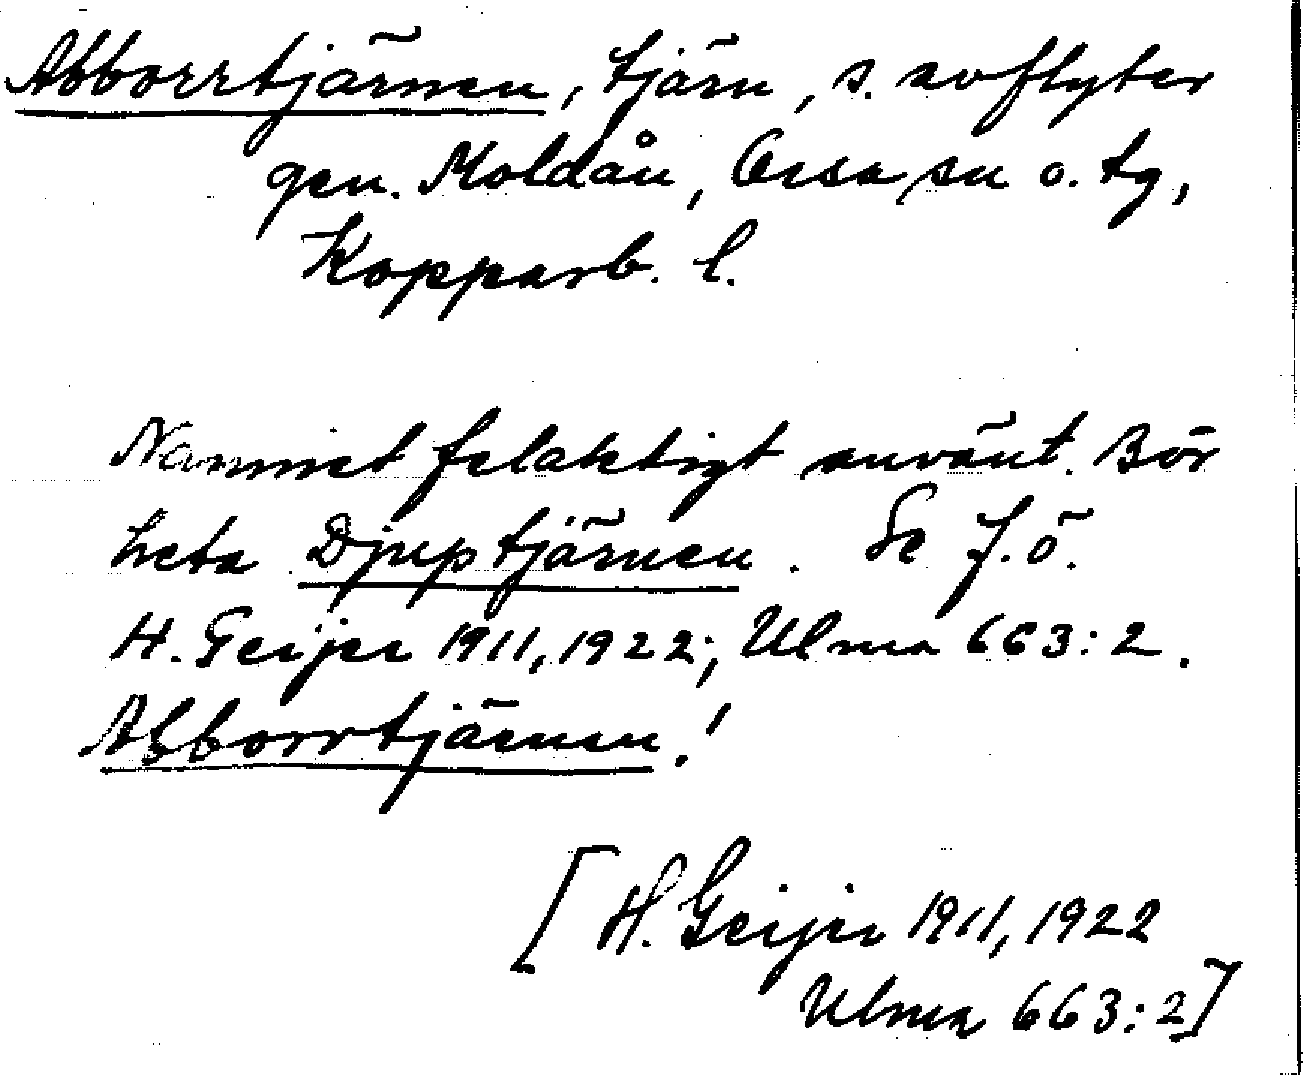 Abborrtjärnen, tjärn, s. avflyter
gen. Moldån, Orsa sn o. tg,
Kopparb. l.
Namnet felaktigt använt. Bör
heta Djuptjärnen. Se f.ö.
H. Geijer 1911, 1922; Ulma 663:2.
Abborrtjärnen!
[H. Geijer 1911, 1922
Ulma 663:2]